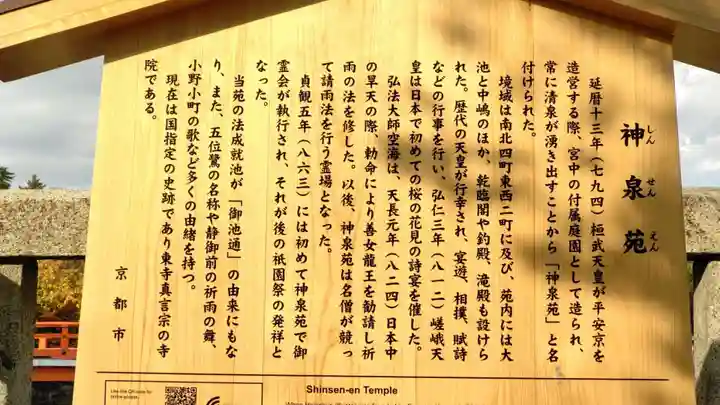 神泉苑
しん せん えん
延暦十三年(七九四)桓武天皇が平安京を
造営する際、宮中の付属庭園として造られ、
常に清泉が湧き出すことから「神泉苑」と名
付けられた。
境域は南北四町東西二町に及び、苑内には大
池と中嶋のほか、乾臨閣や釣殿、滝殿も設けら
れた。歴代の天皇が行幸され、宴遊、相撲、賦詩
などの行事を行い、弘仁三年(八一二)嵯峨天
皇は日本で初めての桜の花見の詩宴を催した。
弘法大師空海は、天長元年(八二四)日本中
の旱天の際、勅命により善女龍王を勧請し祈
雨の法を修した。以後、神泉苑は名僧が競っ
て請雨法を行う霊場となった。
貞観五年(八六三)には初めて神泉苑で御
霊会が執行され、それが後の祇園祭の発祥と
なった。
当苑の法成就池が「御池通」の由来にもな
り、また、五位鷺の名称や静御前の祈雨の舞、
小野小町の歌など多くの由緒を持つ。
現在は国指定の史跡であり東寺真言宗の寺
院である。
京都市
Shinsen-en Temple